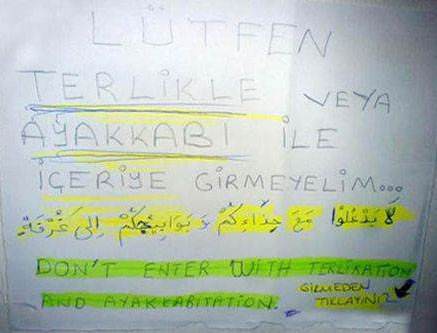 LÜTFEN
TERLİKLE VEYA
AYAKKABI İLE
İÇERİYE GİRMEYELİM...
لَا يَدْخُلُوا مَعَ حِذَاءِكُمْ وَ بَوَابِيجُكُمْ إِلَى غُرْفَةِ
DON'T ENTER WITH TERLIKATION
AND AYAKKABITATION.
GİRMEDEN
TIKLAYINIZ